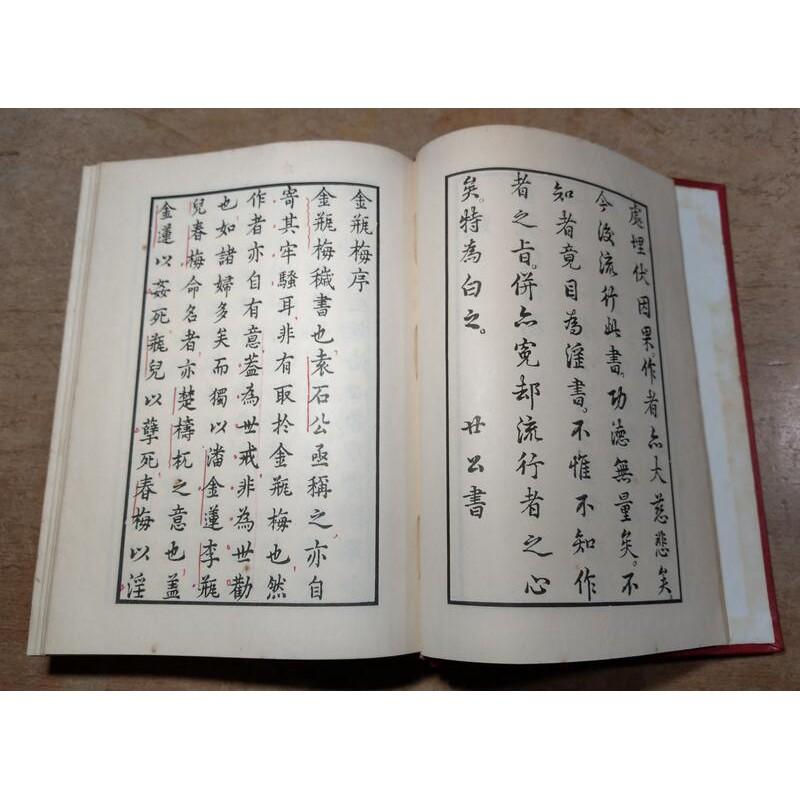 處埋伏因果。作者亦大慈悲矣。
今後流行此書。功德無量矣。不
知者竟目為淫書。不惟不知作
者之旨。併亦冤却流行者之心
矣。特為白之。
廿公書
金瓶梅序
金瓶梅穢書也袁石公亟稱之亦自
寄其牢騷耳非有取於金瓶梅也然
作者亦自有意蓋為世戒非為世勸
也如諸婦多矣而獨以潘金蓮李瓶
兒春梅命名者亦楚檮杌之意也盖
金蓮以姦死瓶兒以孽死春梅以淫